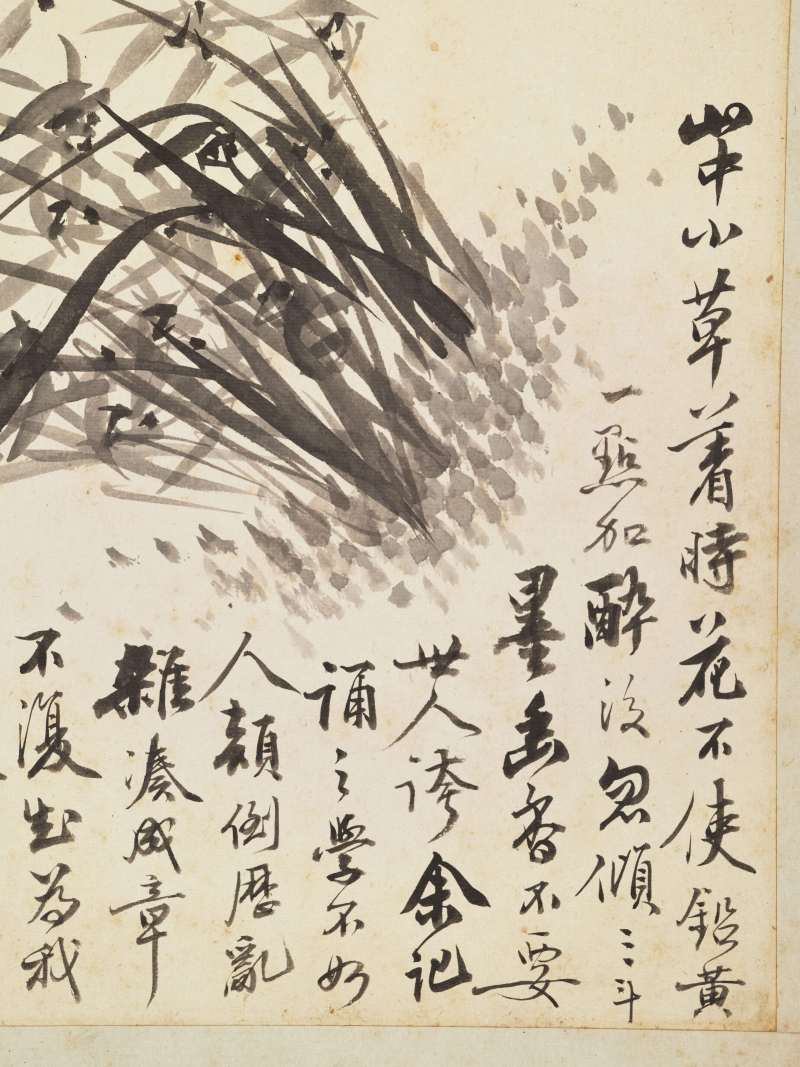 山中小草著時花不使鉛黃
一點加醉後忽傾三斗
墨幽香不要
世人誇余記
誦之學不如
人顛倒歷亂
雜湊成章
不復出為我